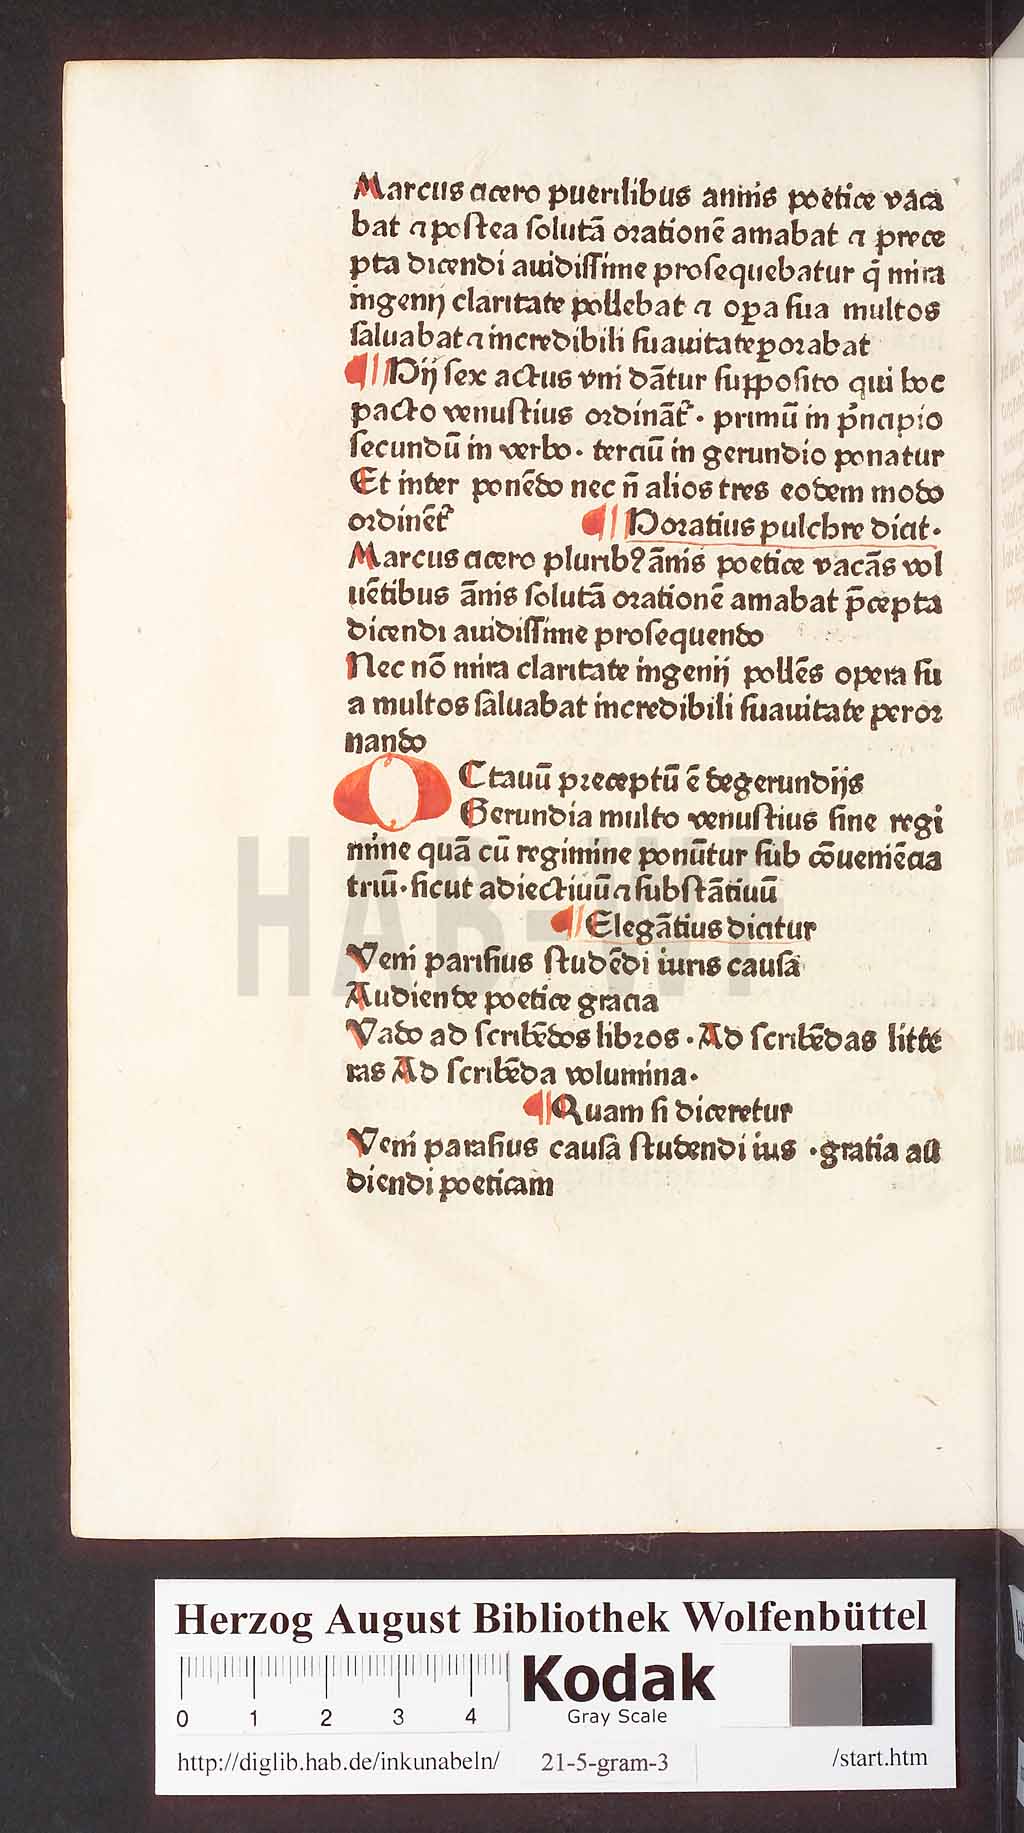 Marcus cicero puerilibus annis poetice vaca
bat ⁊ postea solutā orationē amabat ⁊ prece
pta dicendi auidissime prosequebatur q̄ mira
ingenij claritate pollebat ⁊ oꝑa sua multos
saluabat ⁊ incredibili suauitate ꝑorabat
¶ Hij sex actus vni dātur supposito qui hoc
pacto venustius ordināt᷑. primū in p̓ncipio
secundū in verbo. terciū in gerundio ponatur
Et inter ponēdo nec n̄ alios tres eodem modo
ordinēt᷑ ¶ Horatius pulchre dicit.
Marcus cicero plurib⁹ ānis poetice vacās vol
uētibus ānis solutā orationē amabat p̄cepta
dicendi auidissime prosequendo
Nec nō mira claritate ingenij pollēs opera su
a multos saluabat incredibili suauitate peror
nando
OCtauū preceptū ē de gerundijs
Gerundia multo venustius sine regi
mine quā cū regimine ponūtur sub cōueniēcia
triū. sicut adiectiuū ⁊ substātiuū
¶ Elegātius dicitur
Veni parisius studēdi iuris causa
Audiende poetice gracia
Vado ad scribēdos libros. Ad scribēdas litte
ras Ad scribēda volumina.
¶ Quam si diceretur
Veni parasius causa studendi ius .gratia au
diendi poeticam
HAB-WF
Herzog August Bibliothek Wolfenbüttel
0 1 2 3 4
Kodak
Gray Scale
http://diglib.hab.de/inkunabeln/ 21-5-gram-3 /start.htm